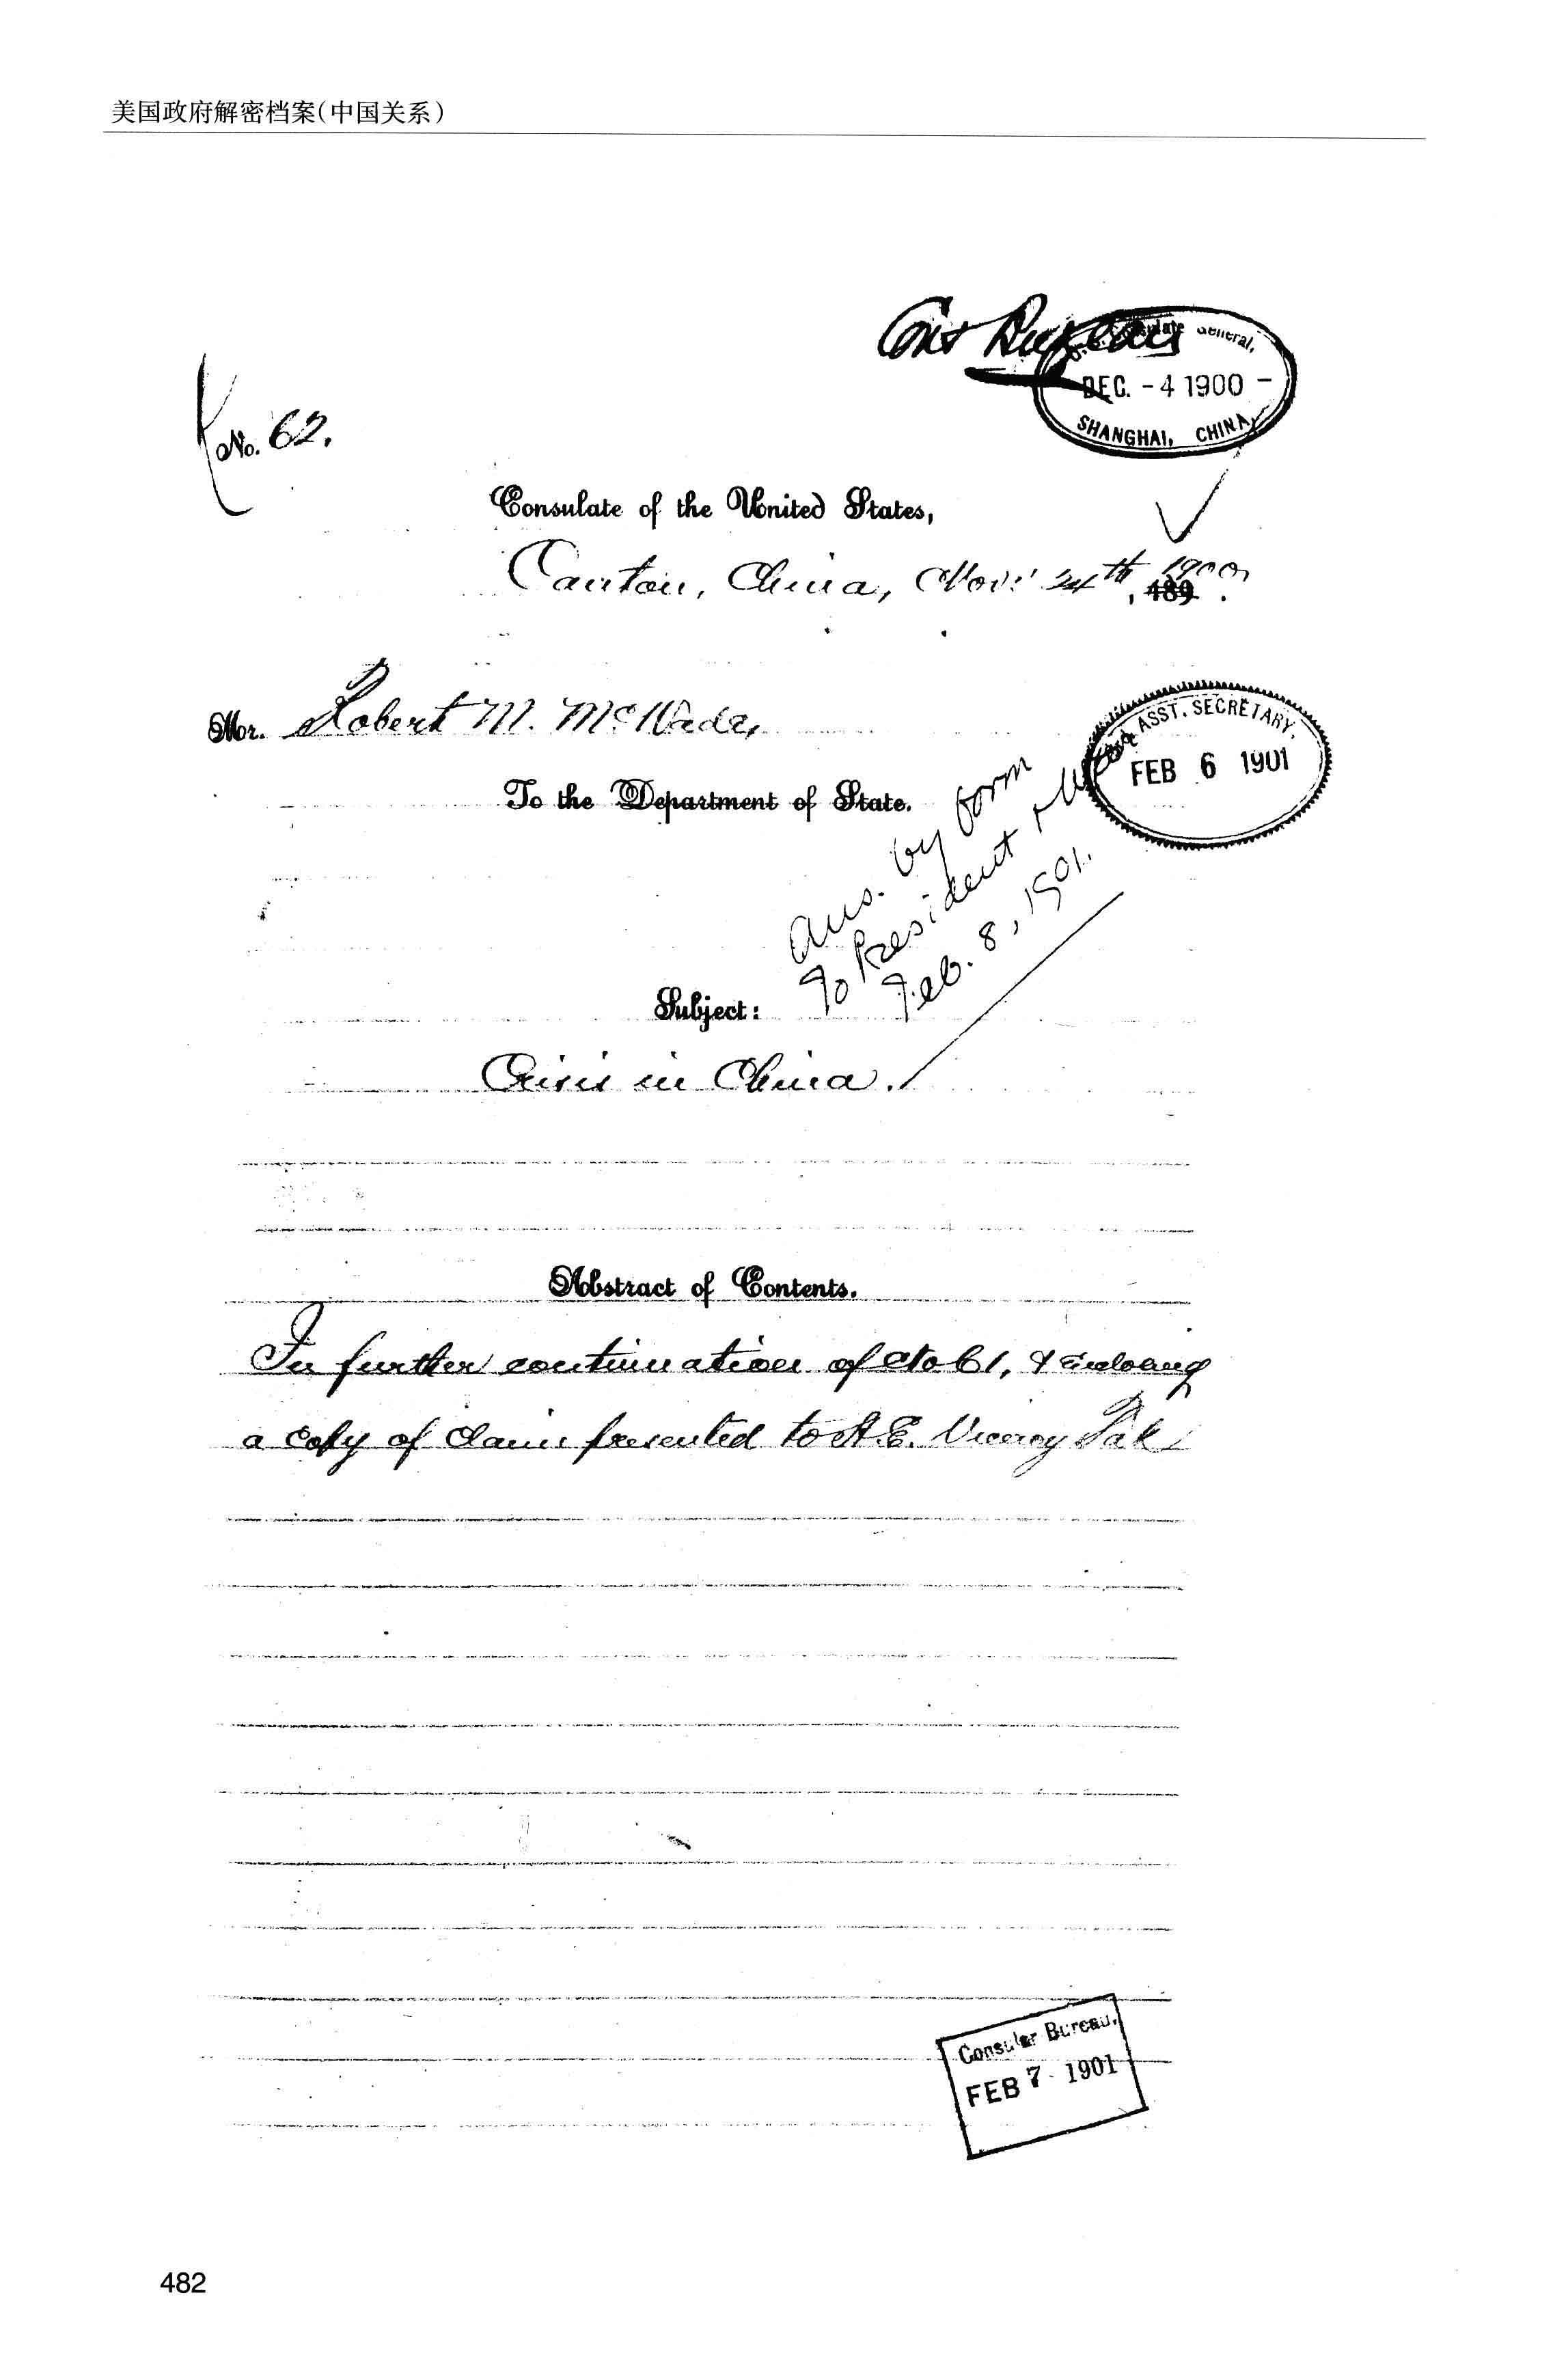 美国政府解密档案(中国关系)
Cons Bureau
U.S. Consulate General,
DEC. - 4 1900 -
SHANGHAI, CHINA
No. 62.
Consulate of the United States,
Canton, China, Nov: 24th, 1900.
189
Mr. Robert M. McWade,
ASST. SECRETARY.
FEB 6 1901
To the Department of State.
Ans. by form
To President
Feb. 8, 1901.
Subject:
Crisis in China.
Abstract of Contents.
In further continuation of No 61, & enclosing
a copy of claims presented to H.E. Viceroy Tak
Consular Bureau,
FEB 7 1901
482